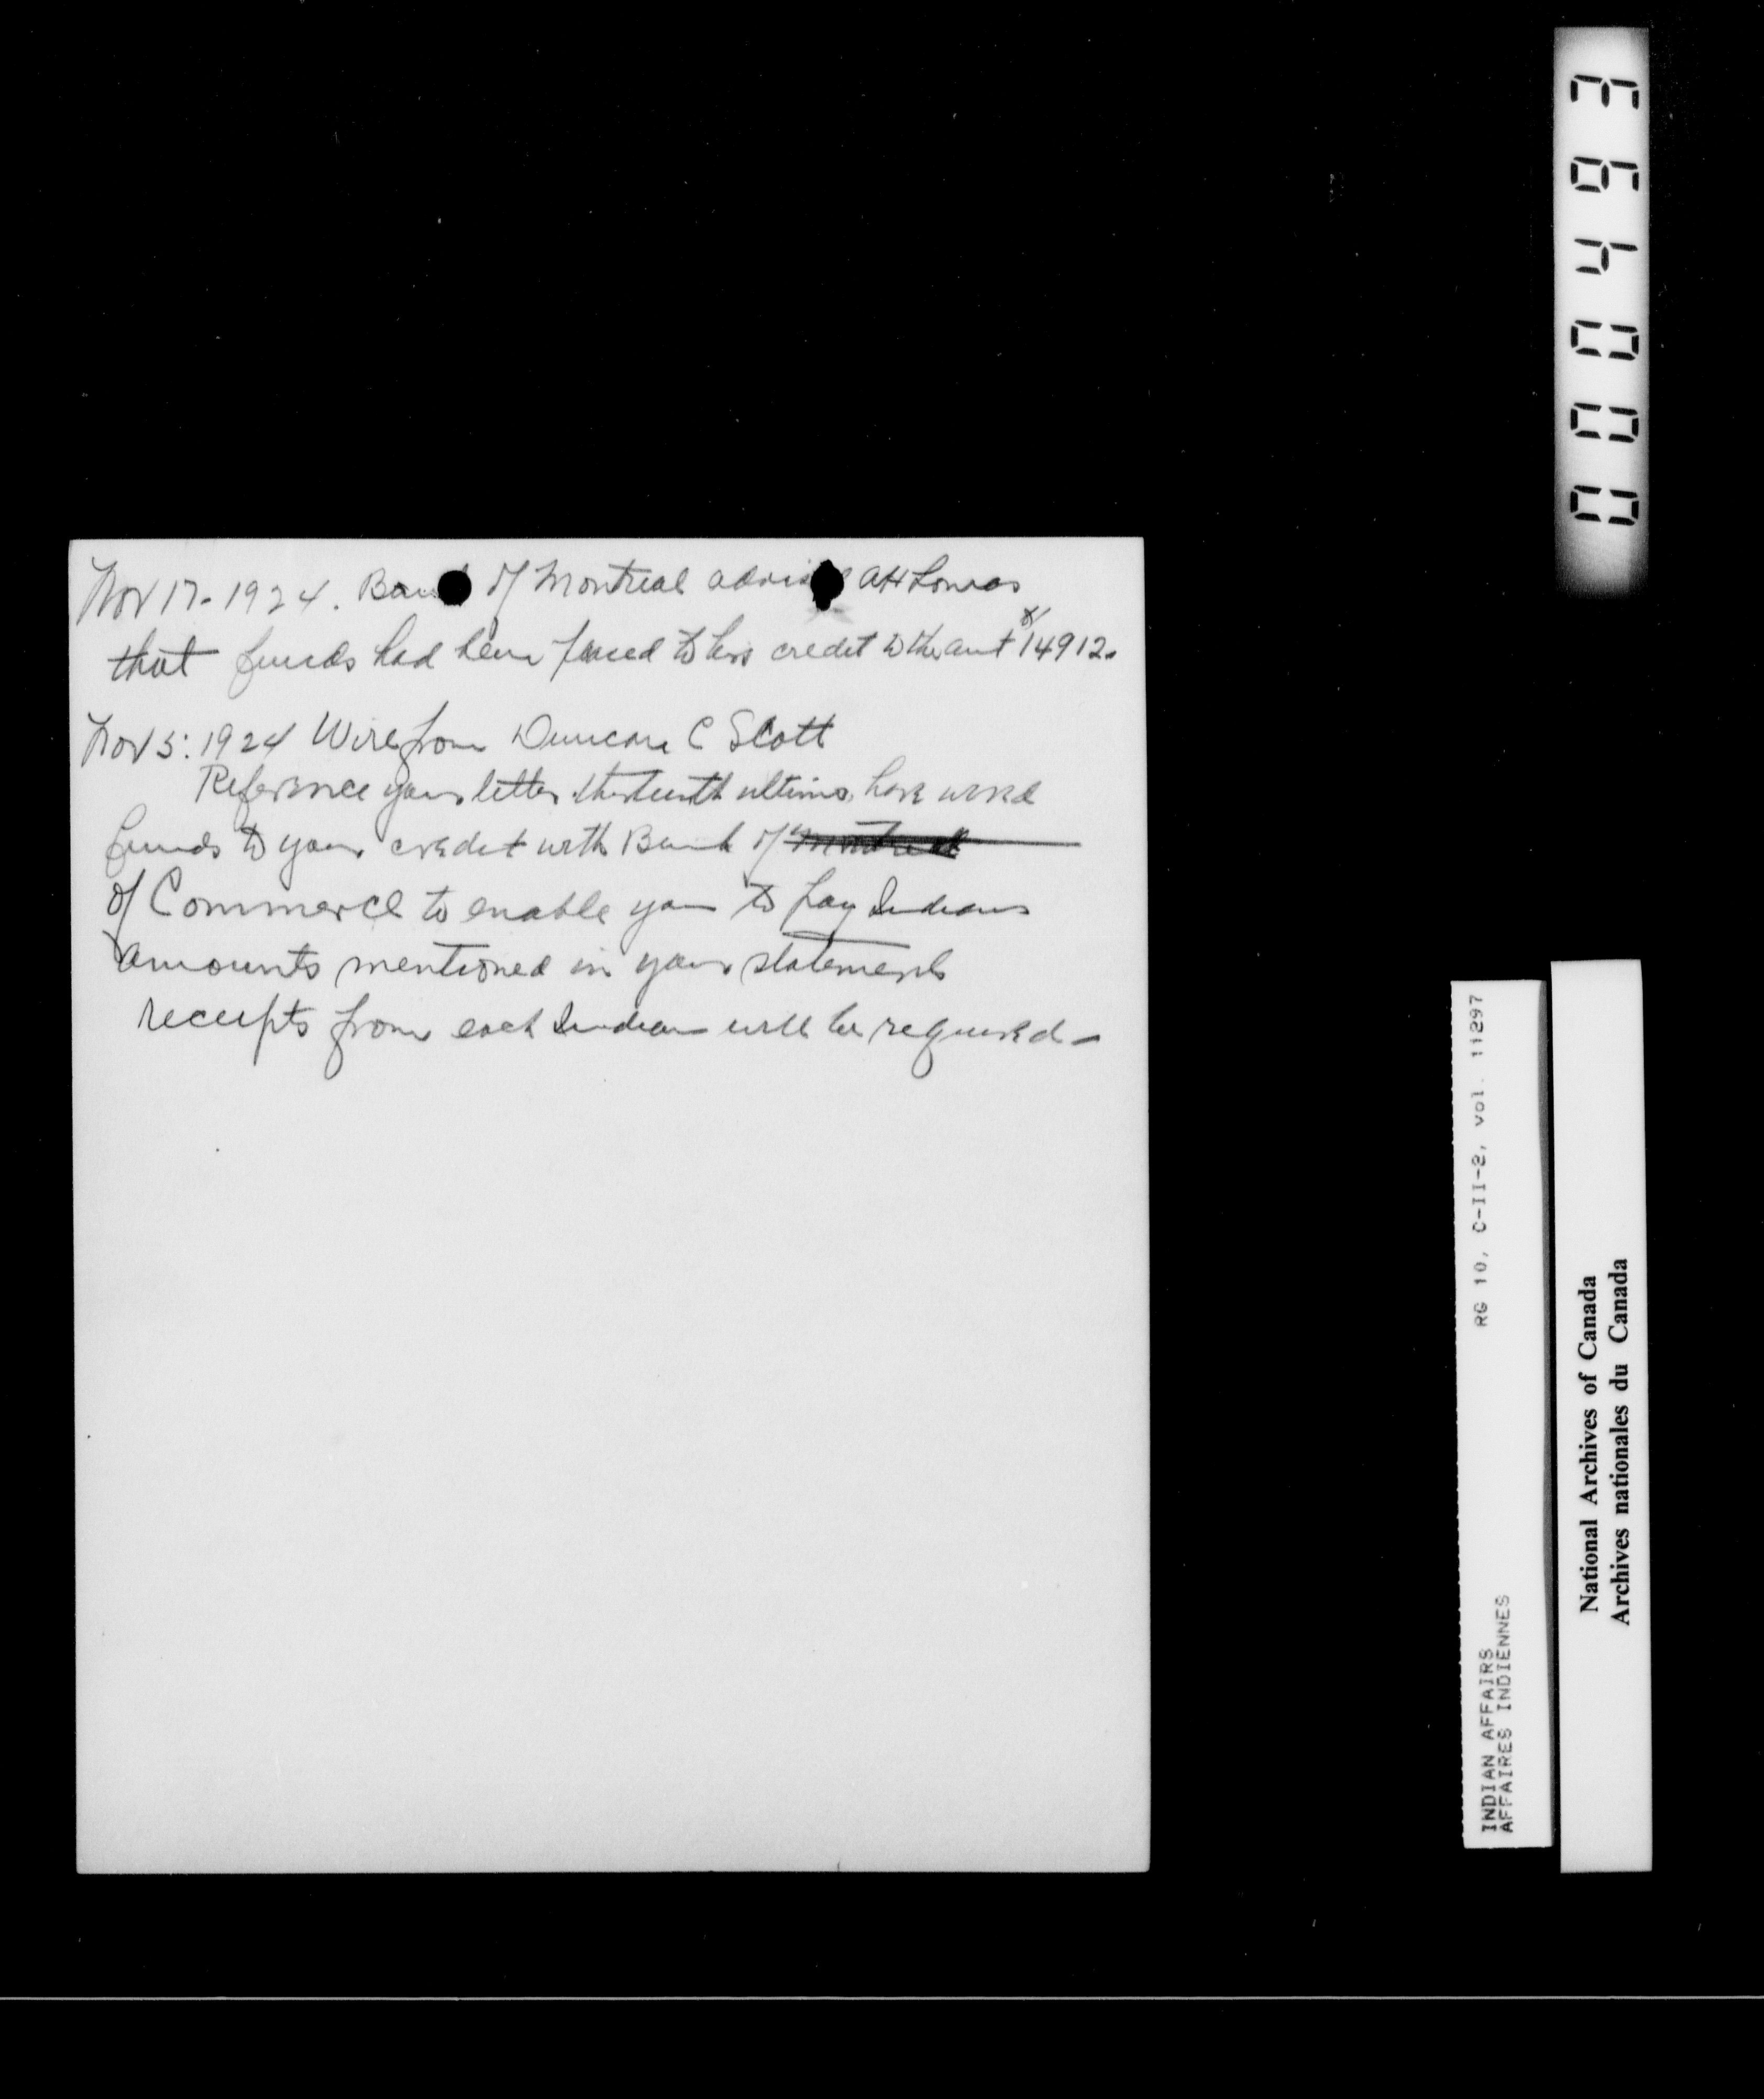 Nov 17 - 1924. Bank of Montreal advised AH Lomas
that funds had been placed to his credit to the amt of 14912.
Nov 5: 1924 Wire from Duncan C Scott
Reference your letter thirteenth ultimo, have wired
funds to your credit with Bank of Montreal
of Commerce to enable you to pay Indians
amounts mentioned in your statement
receipts from each Indian will be required -
000493
RG 10, C-II-2, vol. 11297
INDIAN AFFAIRS
AFFAIRES INDIENNES
National Archives of Canada
Archives nationales du Canada